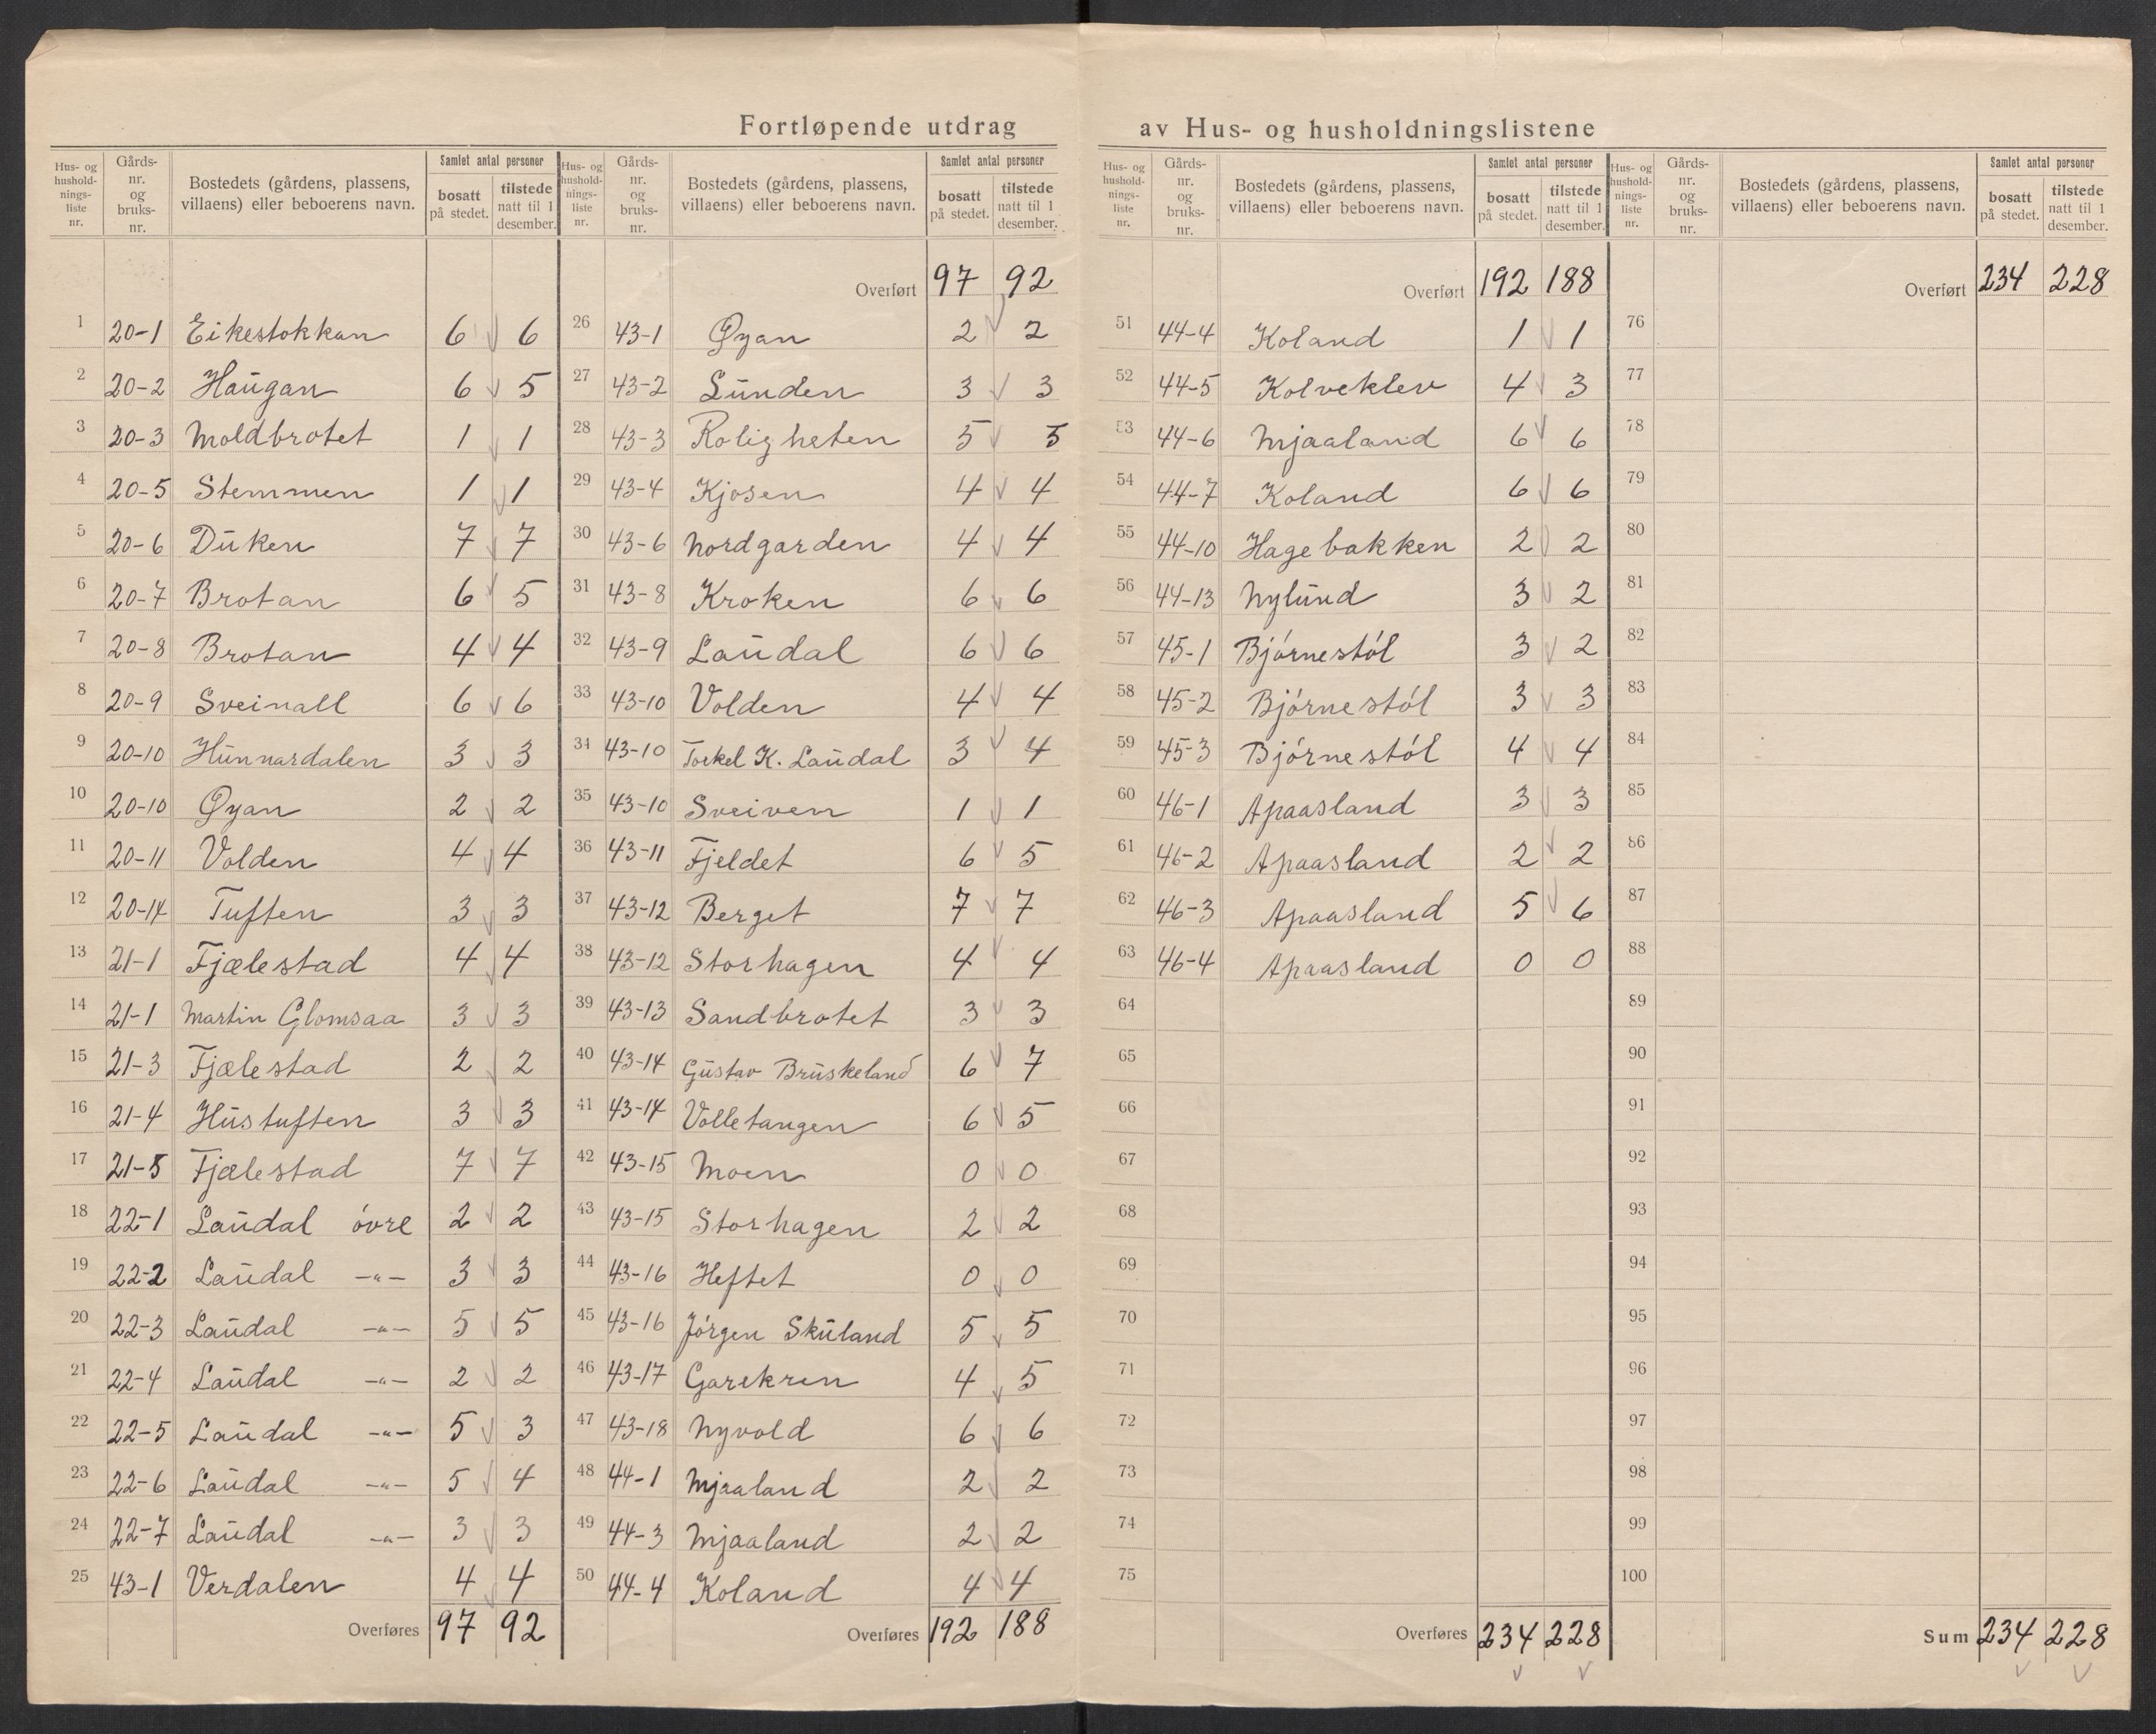 Fortløpende utdrag av Hus- og husholdningslistene
Hus- og husholdnings-liste nr. | Gårds-nr. og bruks-nr. | Bostedets (gårdens, plassens, villaens) eller beboerens navn. | Samlet antal personer bosatt på stedet. | tilstede natt til 1 desember.
1 20-1 Eikestokkan 6 6
2 20-2 Haŭgan 6 5
3 20-3 Moldbrotet 1 1
4 20-5 Stemmen 1 1
5 20-6 Dŭken 7 7
6 20-7 Brotan 6 5
7 20-8 Brotan 4 4
8 20-9 Sveinall 6 6
9 20-10 Hŭnnardalen 3 3
10 20-10 Øyan 2 2
11 20-11 Volden 4 4
12 20-14 Tuften 3 3
13 21-1 Fjælestad 4 4
14 21-1 Martin Glomsaa 3 3
15 21-3 Fjælestad 2 2
16 21-4 Hŭstuften 3 3
17 21-5 Fjælestad 7 7
18 22-1 Laŭdal óvre 2 2
19 22-2 Laŭdal -"- 3 3
20 22-3 Laŭdal -"- 5 5
21 22-4 Laŭdal -"- 2 2
22 22-5 Laŭdal -"- 5 3
23 22-6 Laŭdal -"- 5 4
24 22-7 Laŭdal -"- 3 3
25 43-1 Verdalen 4 4
Overføres 97 92
Hus- og husholdnings-liste nr. | Gårds-nr. og bruks-nr. | Bostedets (gårdens, plassens, villaens) eller beboerens navn. | Samlet antal personer bosatt på stedet. | tilstede natt til 1 desember.
Overført 97 92
26 43-1 Øyan 2 2
27 43-2 Lŭnden 3 3
28 43-3 Roligheten 5 5
29 43-4 Kjosen 4 4
30 43-6 Nordgarden 4 4
31 43-8 Kroken 6 6
32 43-9 Laŭdal 6 6
33 43-10 Volden 4 4
34 43-10 Torkel K. Laŭdal 3 4
35 43-10 Sveiven 1 1
36 43-11 Fjeldet 6 5
37 43-12 Berget 7 7
38 43-12 Storhagen 4 4
39 43-13 Sandbrotet 3 3
40 43-14 Gŭstav Brŭskeland 6 7
41 43-14 Volletangen 6 5
42 43-15 Moen 0 0
43 43-15 Storhagen 2 2
44 43-16 Heftet 0 0
45 43-16 Jórgen Skŭland 5 5
46 43-17 Garekren 4 5
47 43-18 Nyvold 6 6
48 44-1 Mjaaland 2 2
49 44-3 Mjaaland 2 2
50 44-4 Koland 4 4
Overføres 192 188
Hus- og husholdnings-liste nr. | Gårds-nr. og bruks-nr. | Bostedets (gårdens, plassens, villaens) eller beboerens navn. | Samlet antal personer bosatt på stedet. | tilstede natt til 1 desember.
Overført 192 188
51 44-4 Koland 1 1
52 44-5 Kolveklev 4 3
53 44-6 Mjaaland 6 6
54 44-7 Koland 6 6
55 44-10 Hagebakken 2 2
56 44-13 Nylŭnd 3 2
57 45-1 Bjórnestól 3 2
58 45-2 Bjórnestól 3 3
59 45-3 Bjórnestól 4 4
60 46-1 Apaasland 3 3
61 46-2 Apaasland 2 2
62 46-3 Apaasland 5 6
63 46-4 Apaasland 0 0
64
65
66
67
68
69
70
71
72
73
74
75
Overføres 234 228
Hus- og husholdnings-liste nr. | Gårds-nr. og bruks-nr. | Bostedets (gårdens, plassens, villaens) eller beboerens navn. | Samlet antal personer bosatt på stedet. | tilstede natt til 1 desember.
Overført 234 228
76
77
78
79
80
81
82
83
84
85
86
87
88
89
90
91
92
93
94
95
96
97
98
99
100
Sum 234 228